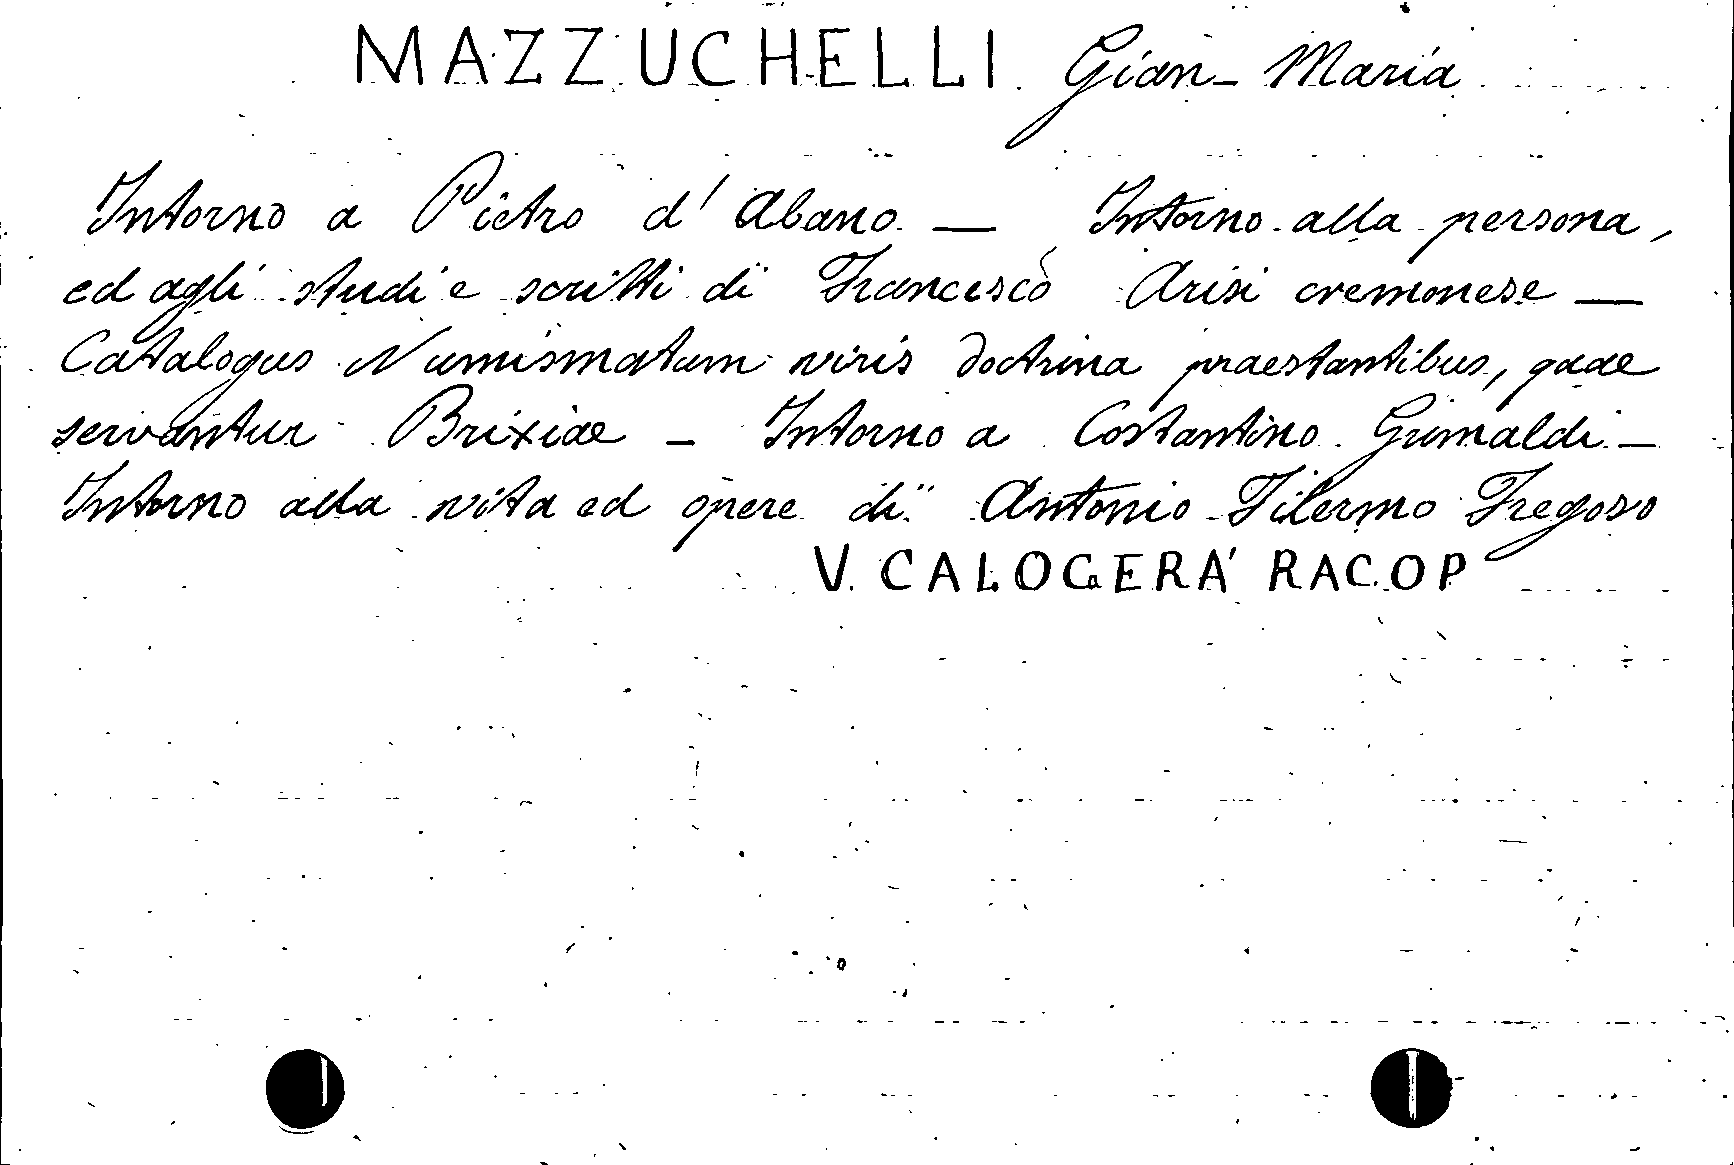 MAZZUCHELLI Gian-Maria
Intorno a Pietro d'Abano — Intorno alla persona,
ed agli studi e scritti di Francesco Arisi cremonese —
Catalogus Numismatum viris doctrina praestantibus, quae
servantur Brixiae - Intorno a Costantino Grimaldi -
Intorno alla vita ed opere di Antonio Filermo Fregoso
V. CALOGERÁ RACOP